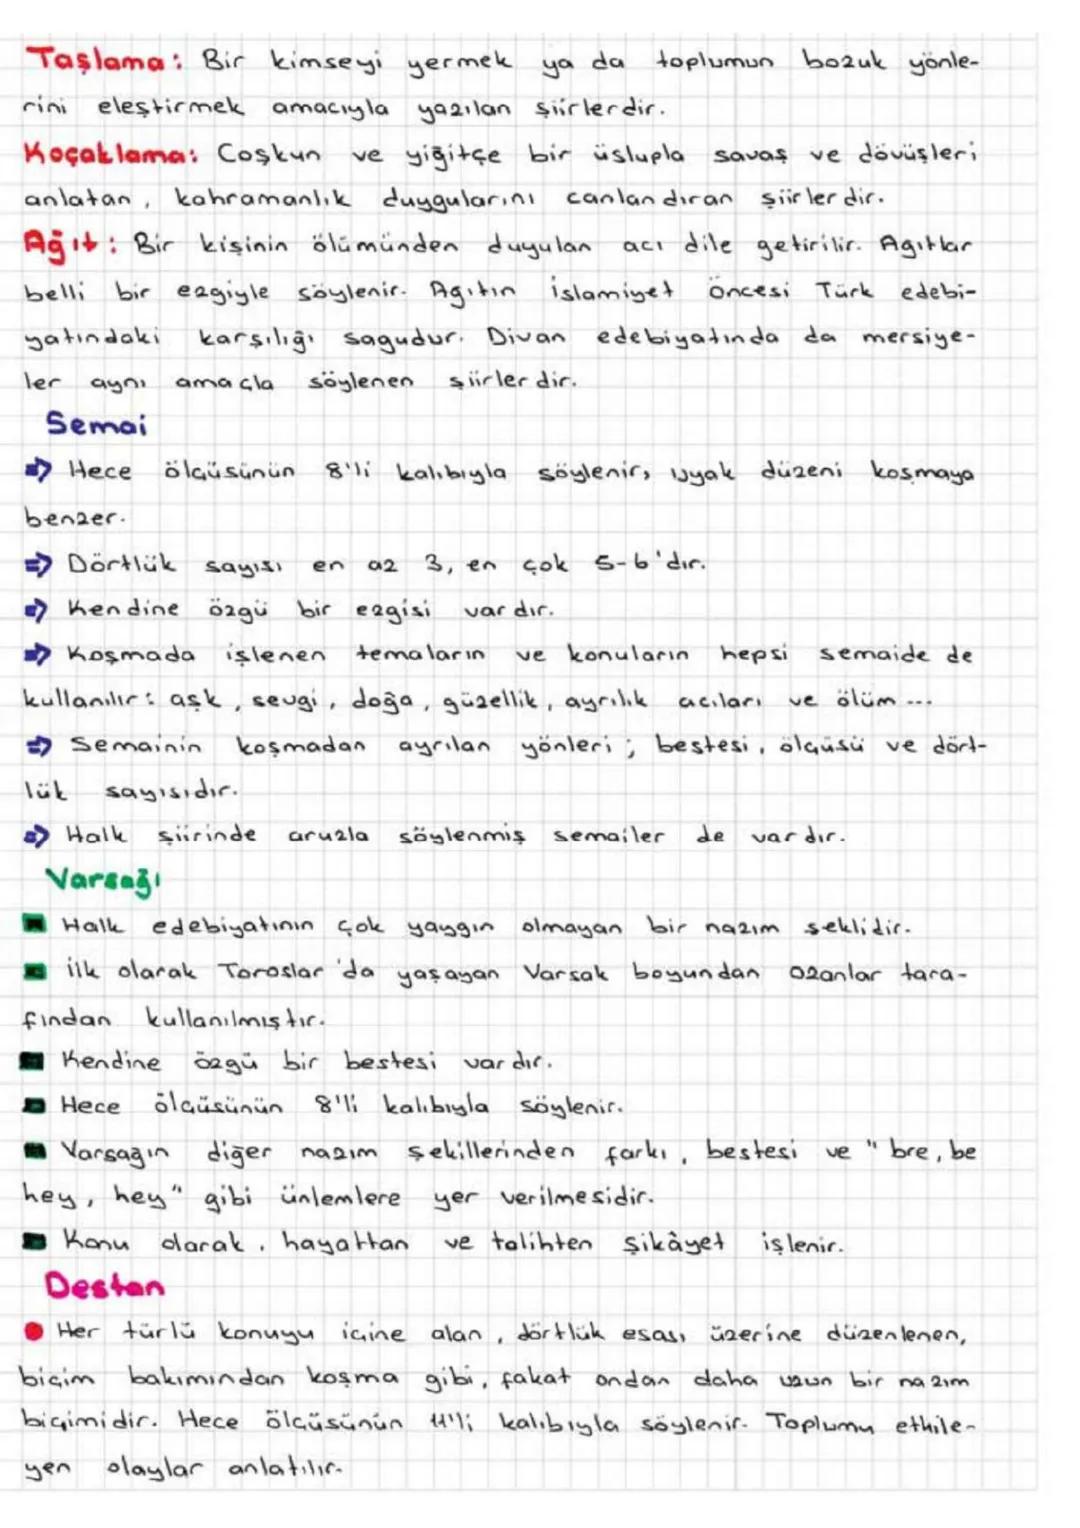 Taşlama: Bir kimseyi yermek ya da toplumun bozuk yönle-
rini eleştirmek amacıyla yazılan şiirlerdir.
Koçaklama: Coşkun ve yiğitçe bir üslupla savaş ve dövüşleri
anlatan, kahramanlık duygularını canlandıran şiirlerdir.
Ağıt: Bir kişinin ölümünden duyulan acı dile getirilir. Agıtlar
belli bir ezgiyle söylenir. Agıtın islamiyet öncesi Türk edebi-
yatındaki karşılığı sagudur. Divan edebiyatında da mersiye-
ler aynı amaçla söylenen şiirlerdir.
Semai
⇒ Hece ölçüsünün 8'li kalıbıyla söylenir, uyak düzeni koşmaya
benzer.
⇒ Dörtlük sayısı en az 3, en çok 5-6'dır.
⇒ Kendine özgü bir ezgisi vardır.
⇒ Koşmada işlenen temaların ve konuların hepsi semaide de
kullanılır: aşk, sevgi, doğa, güzellik, ayrılık acıları ve ölüm...
⇒ Semainin koşmadan ayrılan yönleri; bestesi, ölçüsü ve dört-
lük sayısıdır.
⇒ Halk şiirinde aruzla söylenmiş semailer de vardır.
Varsağı
Halk edebiyatının çok yaygın olmayan bir nazım şeklidir.
İlk olarak Toroslar'da yaşayan Varsak boyundan ozanlar tara-
fından kullanılmıştır.
Kendine özgü bir bestesi vardır.
Hece ölçüsünün 8'li kalıbıyla söylenir.
Varsağın diğer nazım şekillerinden farkı, bestesi ve "bre, be
hey, hey" gibi ünlemlere yer verilmesidir.
Konu olarak, hayattan ve talihten şikâyet işlenir.
Destan
● Her türlü konuyu içine alan, dörtlük esası üzerine düzenlenen,
biçim bakımından koşma gibi, fakat ondan daha uzun bir nazım
biçimidir. Hece ölçüsünün 11'li kalıbıyla söylenir. Toplumu etkile-
yen olaylar anlatılır.